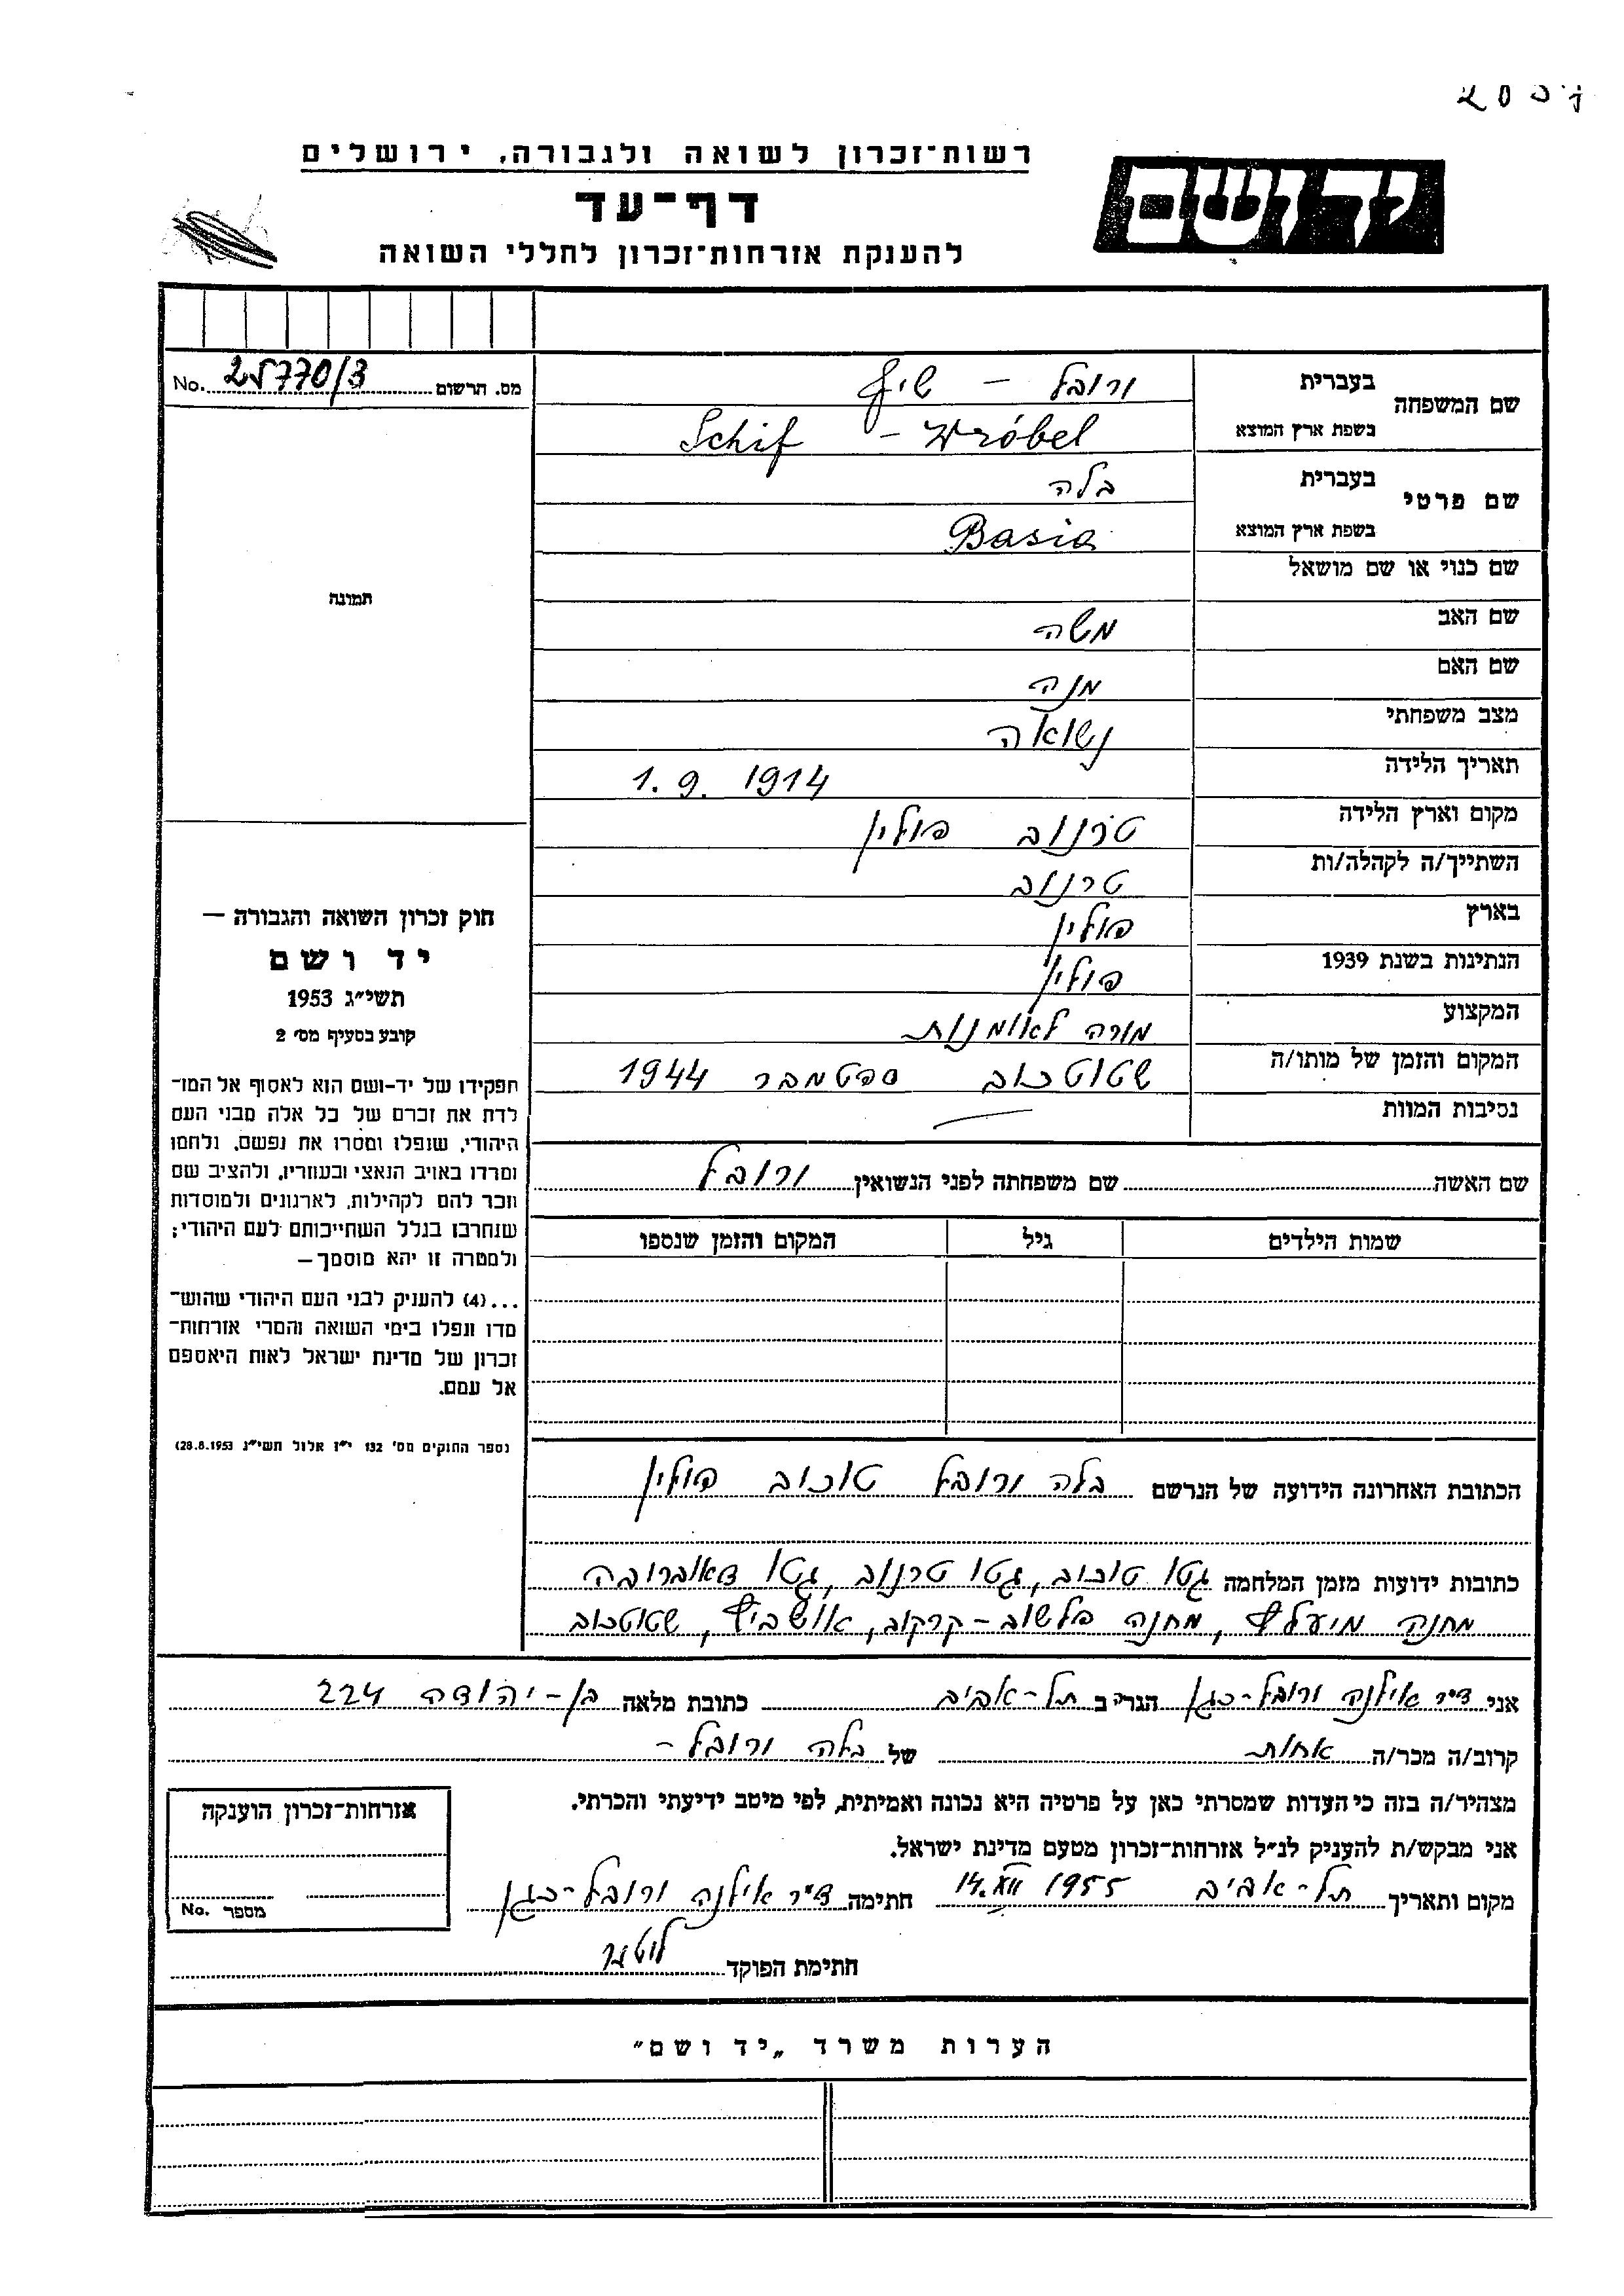 רשות־זכרון לשואה ולגבורה, ירושלים
יד ושם
דף־עד
להענקת אזרחות־זכרון לחללי השואה
מס. הרשום 25770/3 No.
שם המשפחה
בעברית ורובל – שיף
בשפת ארץ המוצא Schif – Wróbel
שם פרטי
בעברית בלה
בשפת ארץ המוצא Basia
שם כנוי או שם מושאל
שם האב משה
שם האם מנה
מצב משפחתי נשואה
תאריך הלידה 1. 9. 1914
מקום וארץ הלידה טרנוב פולין
השתייך/ה לקהלה/ות טרנוב
בארץ פולין
הנתינות בשנת 1939 פולין
המקצוע מורה לאומנות
המקום והזמן של מותו/ה שטוטהוב ספטמבר 1944
נסיבות המוות —
שם האשה שם משפחתה לפני הנשואין ורובל
שמות הילדים גיל המקום והזמן שנספו
הכתובת האחרונה הידועה של הנרשם בלה ורובל טוכוב פולין
כתובות ידועות מזמן המלחמה גטו טוכוב, גטו טרנוב, גטו דאוברובה
מחנה מיעלץ, מחנה פלשוב–קרקוב, אושביץ, שטוטהוב
אני ד״ר אילנה ורובל–כגן הגר/ה ב תל–אביב כתובת מלאה בן–יהודה 224
קרוב/ה מכר/ה אחות של בלה ורובל –
מצהיר/ה בזה כי העדות שמסרתי כאן על פרטיה היא נכונה ואמיתית, לפי מיטב ידיעתי והכרתי.
אני מבקש/ת להעניק לנ״ל אזרחות־זכרון מטעם מדינת ישראל.
מקום ותאריך תל–אביב 14.XII 1955 חתימה ד״ר אילנה ורובל–כגן
חתימת הפוקד
תמונה
חוק זכרון השואה והגבורה —
יד ושם
תשי״ג 1953
קובע בסעיף מס׳ 2
תפקידו של יד־ושם הוא לאסוף אל המו־
לדת את זכרם של כל אלה מבני העם
היהודי, שנפלו ומסרו את נפשם, נלחמו
ומרדו באויב הנאצי ובעוזריו, ולהציב שם
וזכר להם לקהילות, לארגונים ולמוסדות
שנחרבו בגלל השתייכותם לעם היהודי;
ולמטרה זו יהא מוסמך—
...(4) להעניק לבני העם היהודי שהוש־
מדו ונפלו בימי השואה והמרי אזרחות־
זכרון של מדינת ישראל לאות היאספם
אל עמם.
(ספר החוקים מס׳ 132 י״ז אלול תשי״ג 28.8.1953)
אזרחות־זכרון הוענקה
מספר No.
הערות משרד „יד ושם״